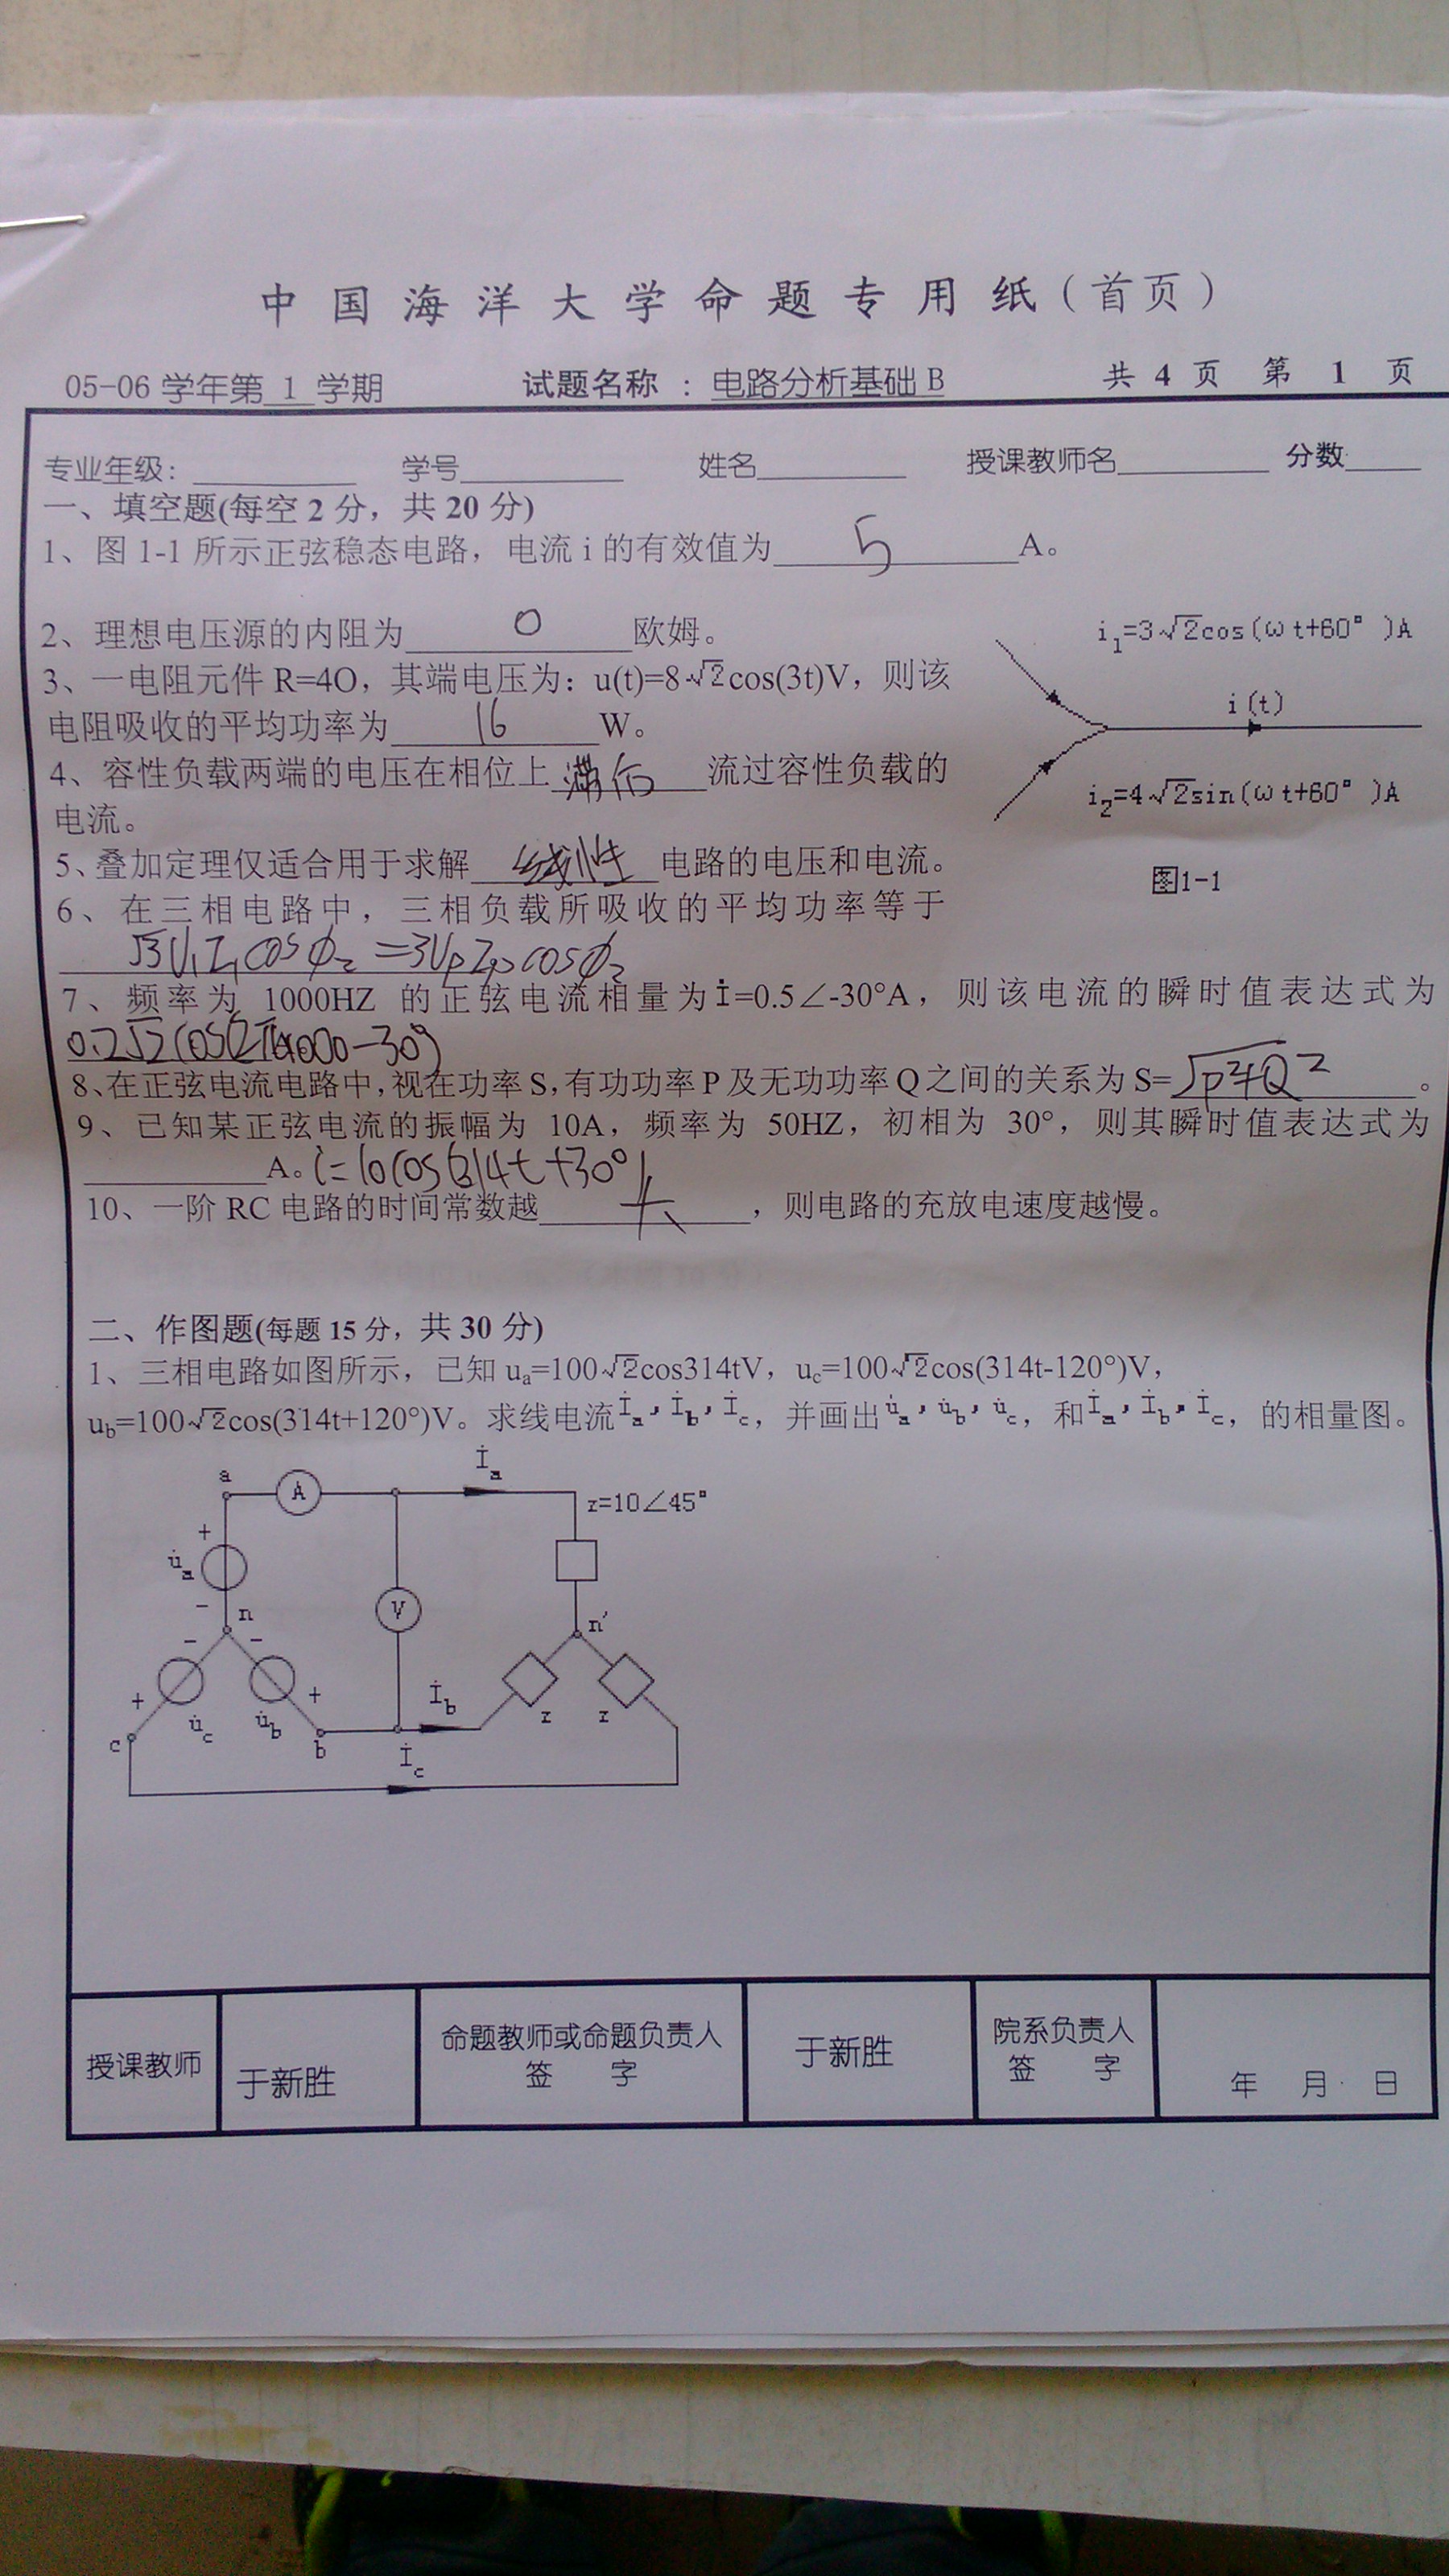 中国海洋大学命题专用纸(首页)
05-06 学年第 1 学期 试题名称 : 电路分析基础 B 共 4 页 第 1 页
专业年级: 学号 姓名 授课教师名 分数
一、填空题(每空 2 分，共 20 分)
1、图 1-1 所示正弦稳态电路，电流 i 的有效值为 5 A。
2、理想电压源的内阻为 0 欧姆。
i₁=3√2cos(ωt+60° )A
3、一电阻元件 R=4O，其端电压为：u(t)=8√2cos(3t)V，则该
电阻吸收的平均功率为 16 W。
i(t)
4、容性负载两端的电压在相位上 滞后 流过容性负载的
电流。
i₂=4√2sin(ωt+60° )A
5、叠加定理仅适合用于求解 线性 电路的电压和电流。
图1-1
6、在三相电路中，三相负载所吸收的平均功率等于
√3U₁I₁cosφz=3UpIpcosφz
7、频率为 1000HZ 的正弦电流相量为İ=0.5∠-30°A，则该电流的瞬时值表达式为
8、在正弦电流电路中,视在功率 S,有功功率 P 及无功功率 Q 之间的关系为 S=√P²+Q² 。
9、已知某正弦电流的振幅为 10A，频率为 50HZ，初相为 30°，则其瞬时值表达式为
A。i=10cos(314t+30°)
10、一阶 RC 电路的时间常数越 大 ，则电路的充放电速度越慢。
二、作图题(每题 15 分，共 30 分)
1、三相电路如图所示，已知 uₐ=100√2cos314tV，u_c=100√2cos(314t-120°)V，
u_b=100√2cos(314t+120°)V。求线电流İₐ，İ_b，İ_c，并画出u̇ₐ，u̇_b，u̇_c，和İₐ，İ_b，İ_c，的相量图。
a A İₐ z=10∠45°
+ u̇ₐ - n V n'
- - + + u̇_c u̇_b İ_b z z
c b İ_c
授课教师 于新胜 命题教师或命题负责人 签 字 于新胜 院系负责人 签 字 年 月 日